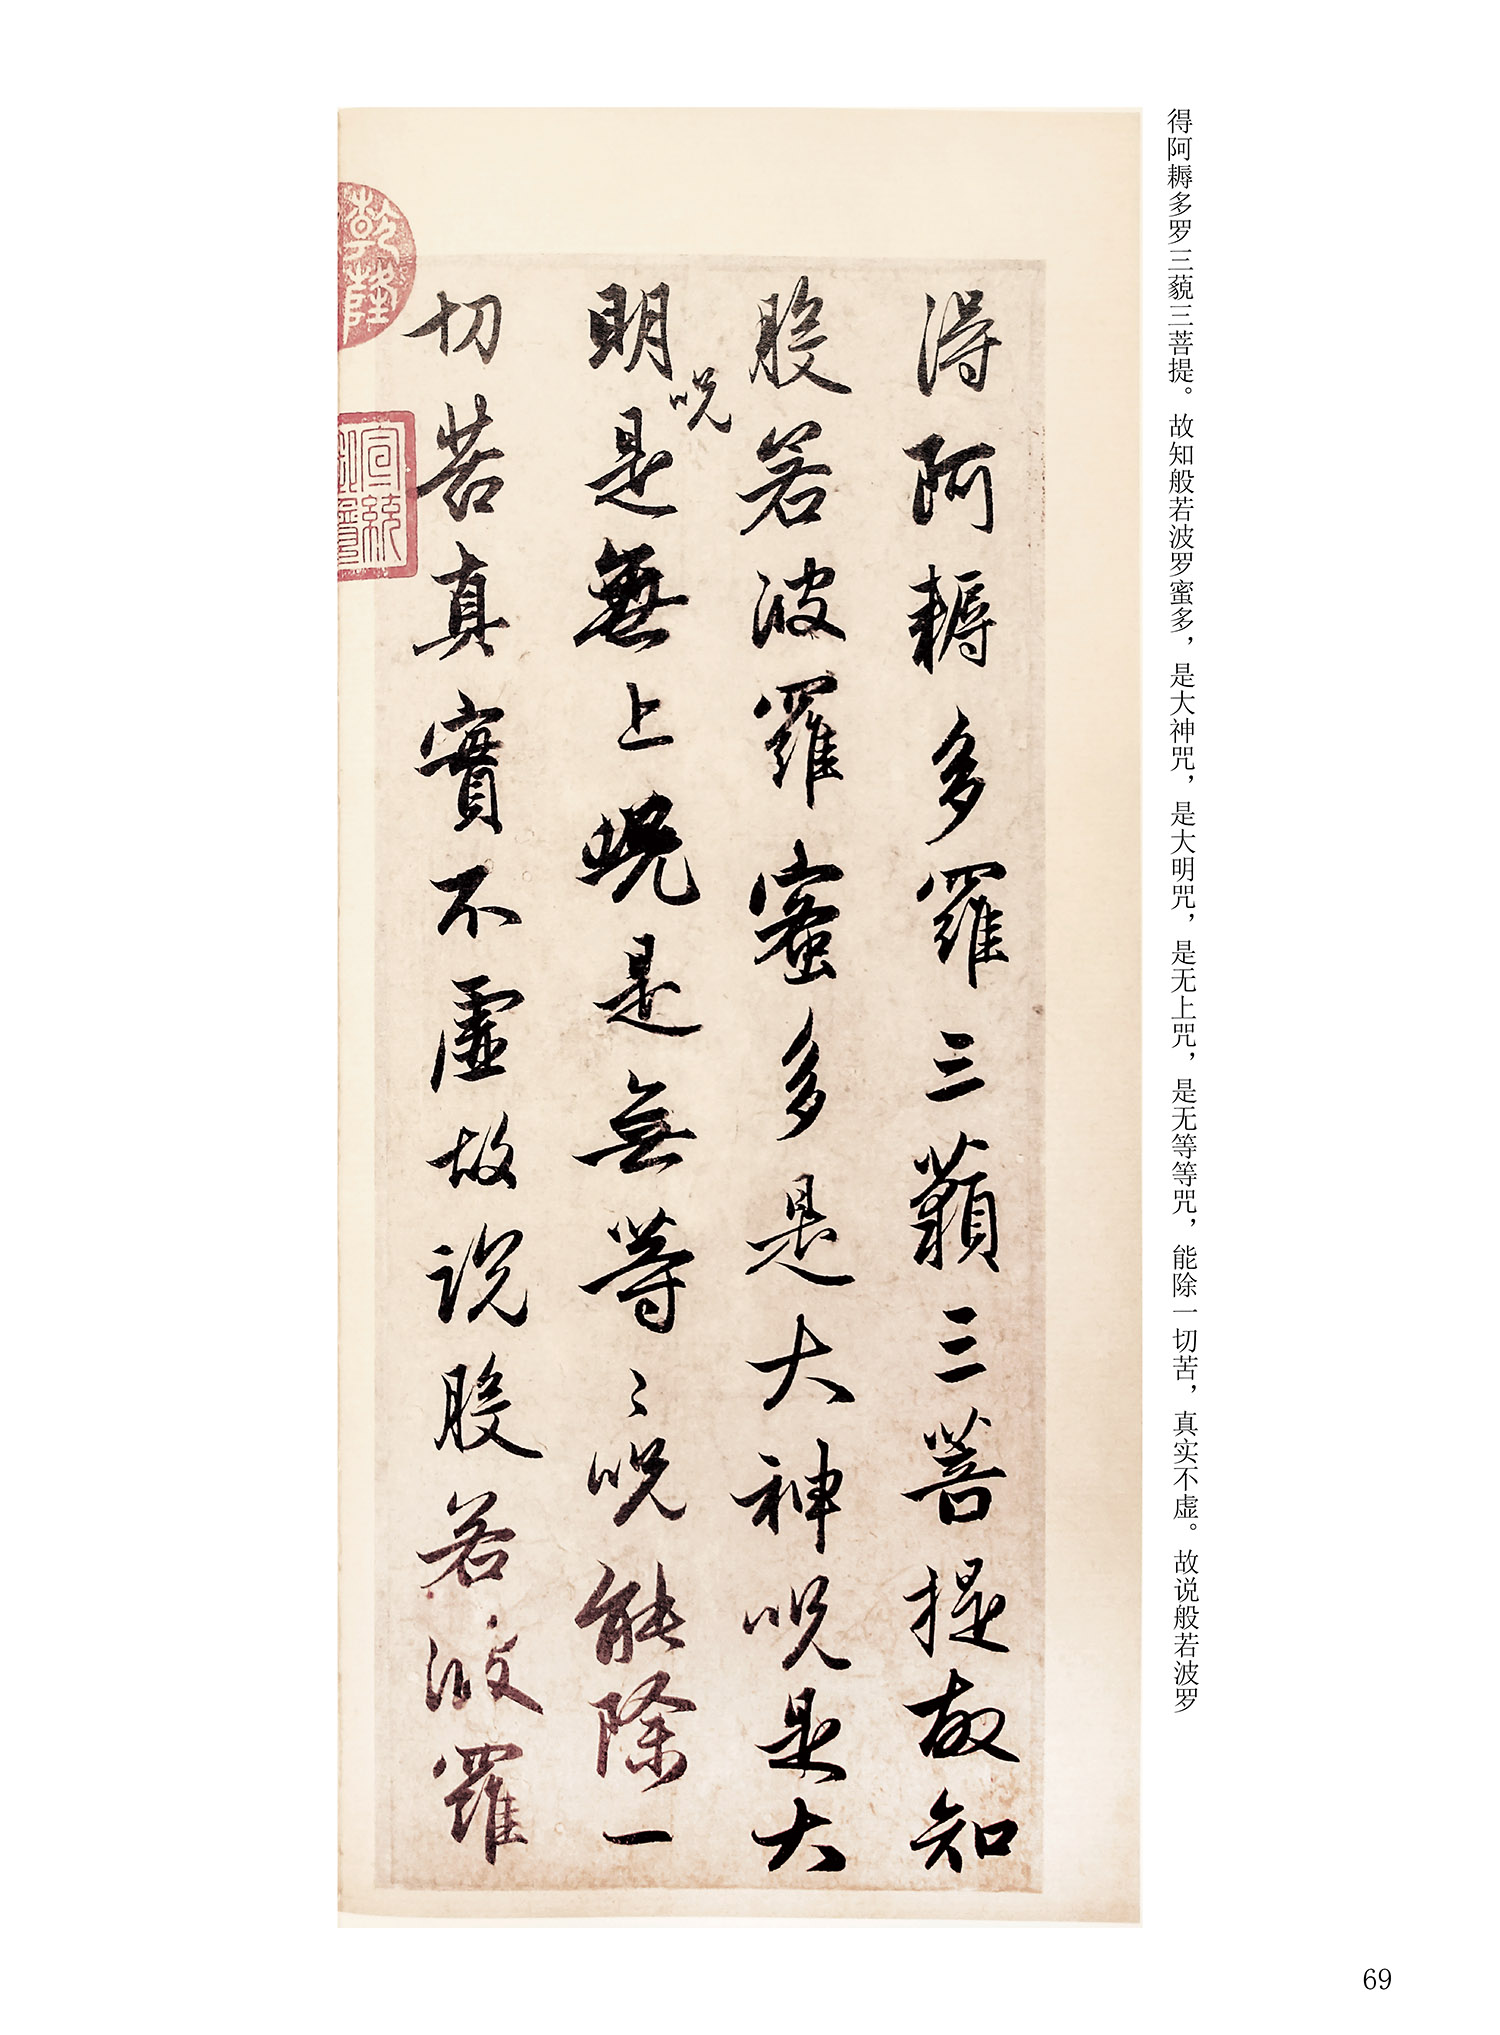 得阿耨多罗三藐三菩提。故知般若波罗蜜多，是大神咒，是大明咒，是无上咒，是无等等咒，能除一切苦，真实不虚。故说般若波罗
得阿耨多羅三藐三菩提故知
般若波羅蜜多是大神呪是大
明呪是無上呪是無等〻呪能除一
切苦真實不虛故說般若波羅
乾隆
宣統
69